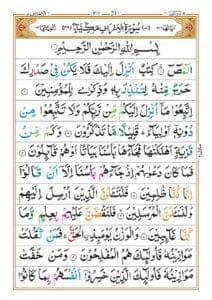 سُوْرَةُ الْاَعْرَافِ مَكِّيَّةٌ
بِسْمِ اللّٰهِ الرَّحْمٰنِ الرَّحِيْمِ
الٓمّٓصٓ ۚ كِتٰبٌ اُنْزِلَ اِلَيْكَ فَلَا يَكُنْ فِيْ صَدْرِكَ
حَرَجٌ مِّنْهُ لِتُنْذِرَ بِهٖ وَذِكْرٰى لِلْمُؤْمِنِيْنَ
اِتَّبِعُوْا مَآ اُنْزِلَ اِلَيْكُمْ مِّنْ رَّبِّكُمْ وَلَا تَتَّبِعُوْا
مِنْ دُوْنِهٖٓ اَوْلِيَآءَ ؕ قَلِيْلًا مَّا تَذَكَّرُوْنَ وَكَمْ مِّنْ
قَرْيَةٍ اَهْلَكْنٰهَا فَجَآءَهَا بَاْسُنَا بَيَاتًا اَوْ هُمْ قَآئِلُوْنَ
فَمَا كَانَ دَعْوٰىهُمْ اِذْ جَآءَهُمْ بَاْسُنَآ اِلَّآ اَنْ قَالُوْٓا
اِنَّا كُنَّا ظٰلِمِيْنَ فَلَنَسْئَلَنَّ الَّذِيْنَ اُرْسِلَ اِلَيْهِمْ
وَلَنَسْئَلَنَّ الْمُرْسَلِيْنَ فَلَنَقُصَّنَّ عَلَيْهِمْ بِعِلْمٍ وَّمَا
كُنَّا غَآئِبِيْنَ وَالْوَزْنُ يَوْمَئِذِ ࣙالْحَقُّ ۚ فَمَنْ ثَقُلَتْ
مَوَازِيْنُهٗ فَاُولٰٓئِكَ هُمُ الْمُفْلِحُوْنَ وَمَنْ خَفَّتْ
مَوَازِيْنُهٗ فَاُولٰٓئِكَ الَّذِيْنَ خَسِرُوْٓا اَنْفُسَهُمْ بِمَا كَانُوْا